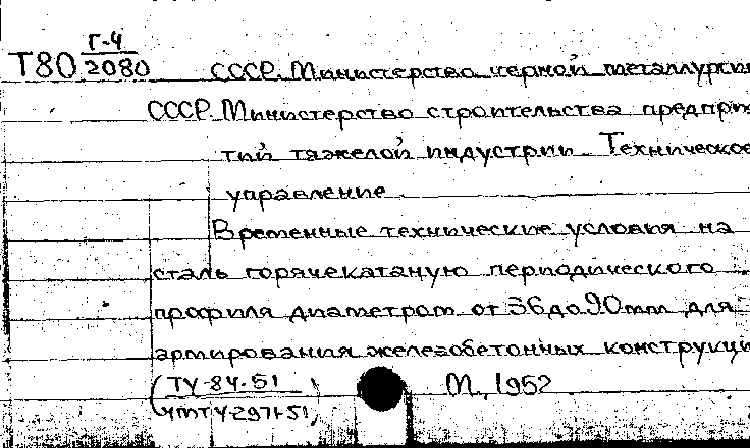 Г-4
Т80 2080 СССР. Министерство черной металлургии
СССР. Министерство строительства предприя
тий тяжелой индустрии. Техническое
управление.
Временные технические условия на
сталь горячекатаную периодического
профиля диаметром от 36 до 90 мм для
армирования железобетонных конструкци
(ТУ-84-51 М, 1952
ЧМТУ-297-51)